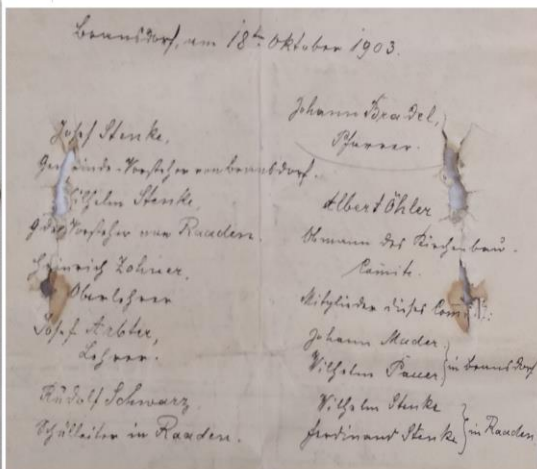 Braunsdorf, am 18ten Oktober 1903.
Josef Stenke,
Gemeinde-Vorsteher von Braunsdorf.
Wilhelm Stenke,
Gde. Vorsteher von Raaden.
Heinrich Zohner,
Oberlehrer
Josef Arbter,
Lehrer.
Rudolf Schwarz
Schulleiter in Raaden.
Johann Bradel,
Pfarrer.
Albert Öhler
Obmann des Kirchenbau-
Comité.
Mitglieder dieses Comité:
Johann Mader
Wilhelm Pauer } in Braunsdorf
Wilhelm Stenke
Ferdinand Stenke } in Raaden